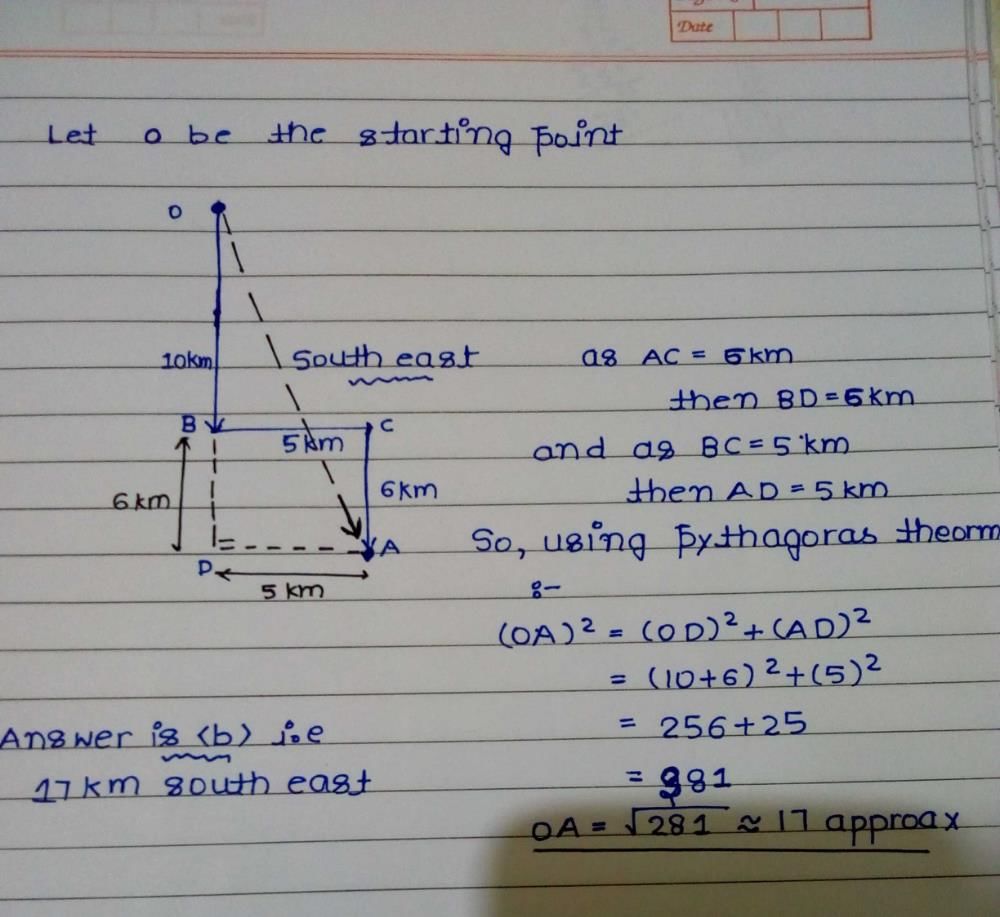 Date
Let o be the starting point
O
10km
South east
B
C
5km
6km
6km
A
D
5 km
as AC = 6km
then BD = 6km
and as BC = 5 km
then AD = 5 km
So, using Pythagoras theorm
:-
(OA)² = (OD)² + (AD)²
= (10+6)² + (5)²
= 256 + 25
= 281
OA = √281 ≈ 17 approax
Answer is (b) i.e
17km south east